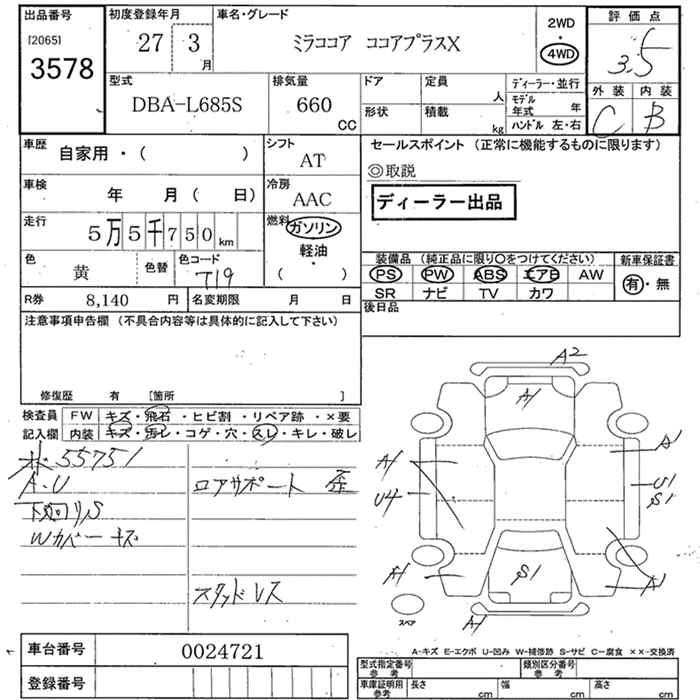 出品番号 初度登録年月 車名・グレード 2WD 評価点
[2065] 27 3 月 ミラココア ココアプラスX ・ 3.5
3578 4WD
型式 排気量 ドア 定員 人 ディーラー・並行 外装 内装
DBA-L685S 660 CC 形状 積載 kg モデル年式 年 C B
ハンドル 左・右
車歴 自家用・( ) シフト AT セールスポイント (正常に機能するものに限ります)
◎取説
車検 年 月( 日) 冷房 AAC ディーラー出品
走行 5万5千750km 燃料 ガソリン
軽油・
( )
色 黄 色替 色コード T19 装備品 (純正品に限り○をつけてください) 新車保証書
PS PW ABS エアB AW 有・無
R券 8,140 円 名変期限 月 日 SR ナビ TV カワ
注意事項申告欄 (不具合内容等は具体的に記入して下さい) 後日品
修復歴 有 [箇所 ]
検査員 FW キズ・飛石・ヒビ割・リペア跡・×要
記入欄 内装 キズ・汚レ・コゲ・穴・スレ・キレ・破レ
55751
A・U ロアサポート 歪
下廻りS
Wカバーキズ
スタッドレス
A2
A1
A1 A1
U4 U1
S1
A1 S1 A1
A1
スペア
A-キズ E-エクボ U-凹み W-補修跡 S-サビ C-腐食 ××-交換済
車台番号 0024721
型式指定番号 参考 類別区分番号 参考
登録番号 車庫証明用 参考 長さ cm 幅 cm 高さ cm